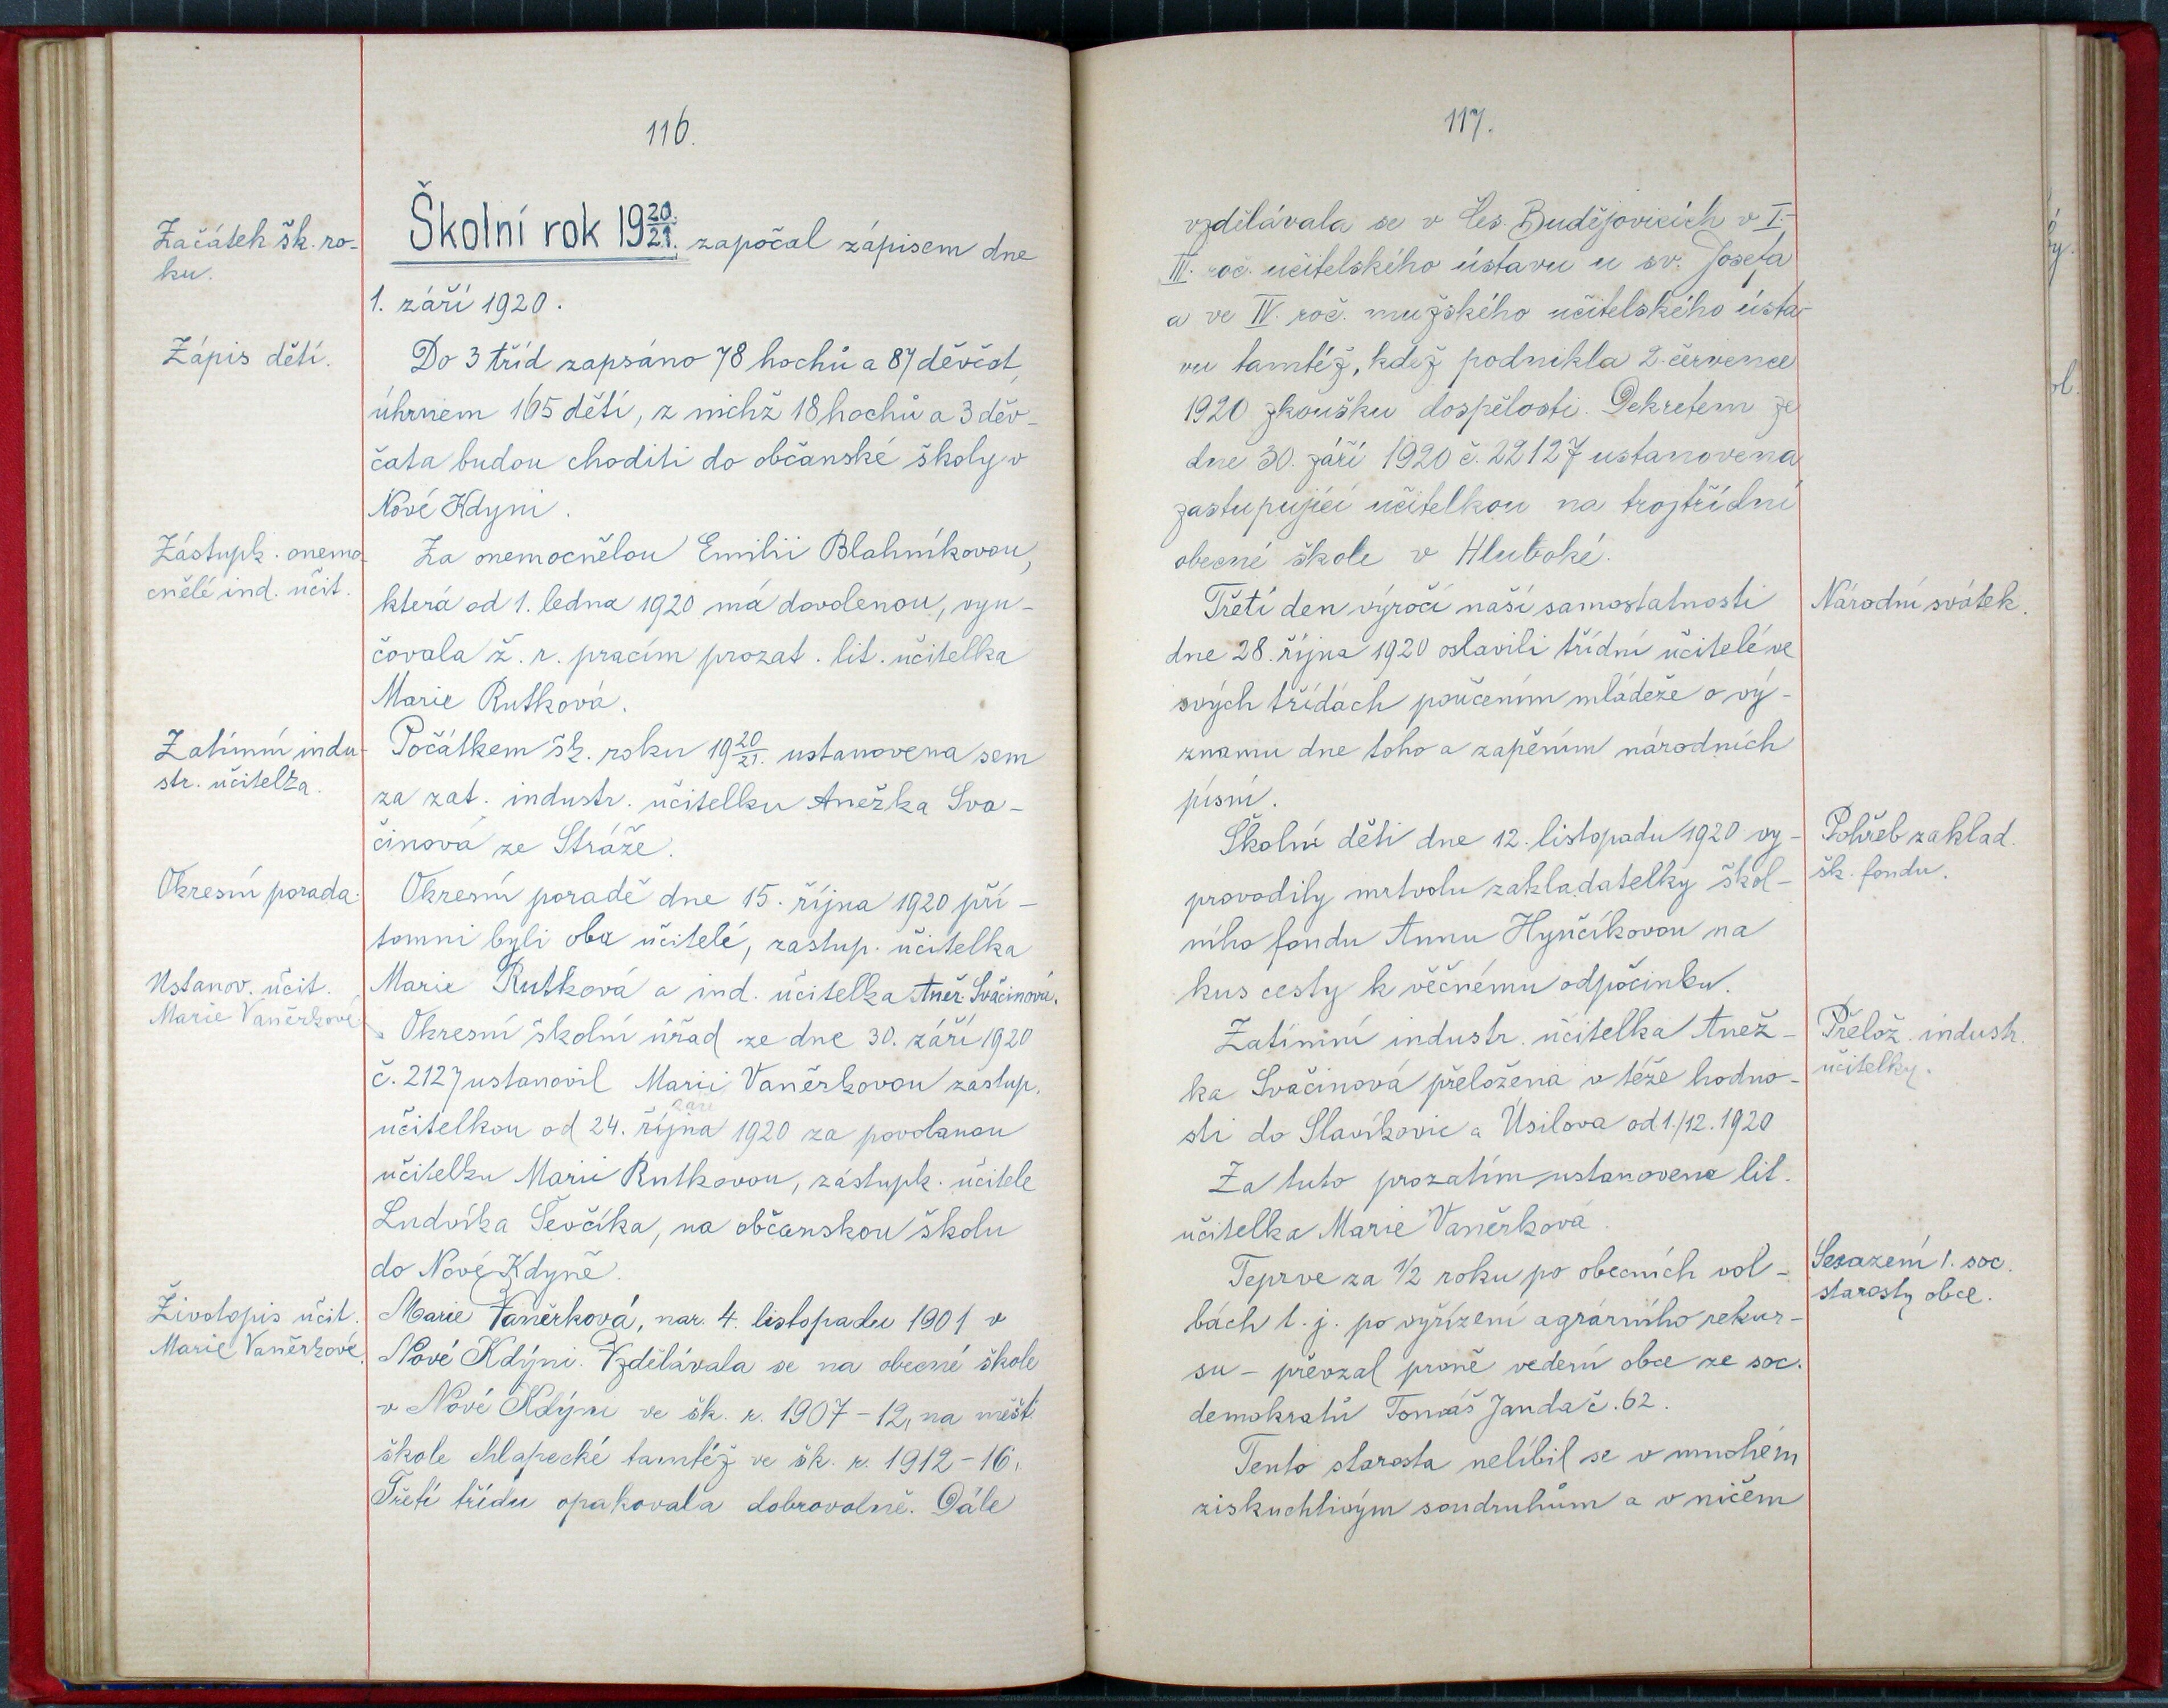 116.
Začátek šk. ro-
ku.
Školní rok 1920/21. započal zápisem dne
1. září 1920.
Zápis dětí.
Do 3 tříd zapsáno 78 hochů a 87 děvčat,
úhrnem 165 dětí, z nichž 18 hochů a 3 děv-
čata budou choditi do občanské školy v
Nové Kdyni.
Zástupk. onemo-
cnělé ind. učit.
Za onemocnělou Emilii Blahníkovou,
která od 1. ledna 1920 má dovolenou, vyu-
čovala ž. r. pracím prozat. lit. učitelka
Marie Rutková.
Zatímní indu-
str. učitelka.
Počátkem šk. roku 1920/21. ustanovena sem
za zat. industr. učitelku Anežka Sva-
činová ze Stráže.
Okresní porada.
Okresní poradě dne 15. října 1920 pří-
tomni byli oba učitelé, zastup. učitelka
Marie Rutková a ind. učitelka Anež. Svačinová.
Ustanov. učit.
Marie Vaněrkové
Okresní školní úřad ze dne 30. září 1920
č. 2127 ustanovil Marii Vaněrkovou zastup.
září
učitelkou od 24. října 1920 za povolanou
učitelku Marii Rutkovou, zástupk. učitele
Ludvíka Ševčíka, na občanskou školu
do Nové Kdyně.
Životopis učit.
Marie Vaněrkové.
Marie Vaněrková, nar. 4. listopadu 1901 v
Nové Kdýni. Vzdělávala se na obecné škole
v Nové Kdýni ve šk. r. 1907-12, na měšť.
škole chlapecké tamtéž ve šk. r. 1912-16.
Třetí třídu opakovala dobrovolně. Dále
117.
vzdělávala se v Čes. Budějovicích v I.-
III. roč. učitelského ústavu u sv. Josefa
a ve IV. roč. mužského učitelského ústa-
vu tamtéž, kdež podnikla 2. července
1920 zkoušku dospělosti. Dekretem ze
dne 30. září 1920 č. 22127 ustanovena
zastupující učitelkou na trojtřídní
obecné škole v Hluboké.
Národní svátek.
Třetí den výročí naší samostatnosti
dne 28. října 1920 oslavili třídní učitelé ve
svých třídách poučením mládeže o vý-
znamu dne toho a zapěním národních
písní.
Pohřeb zaklad.
šk. fondu.
Školní děti dne 12. listopadu 1920 vy-
provodily mrtvolu zakladatelky škol-
ního fondu Annu Hynčíkovou na
kus cesty k věčnému odpočinku.
Přelož. industr.
učitelky.
Zatímní industr. učitelka Anež-
ka Svačinová přeložena v téže hodno-
sti do Slavíkovic a Úsilova od 1./12. 1920
Za tuto prozatím ustanovena lit.
učitelka Marie Vaněrková.
Sesazení 1. soc.
starosty obce.
Teprve za 1/2 roku po obecních vol-
bách t. j. po vyřízení agrárního rekur-
su - převzal prvně vedení obce ze soc.
demokratů Tomáš Janda č. 62.
Tento starosta nelíbil se v mnohém
ziskuchtivým soudruhům a v ničem